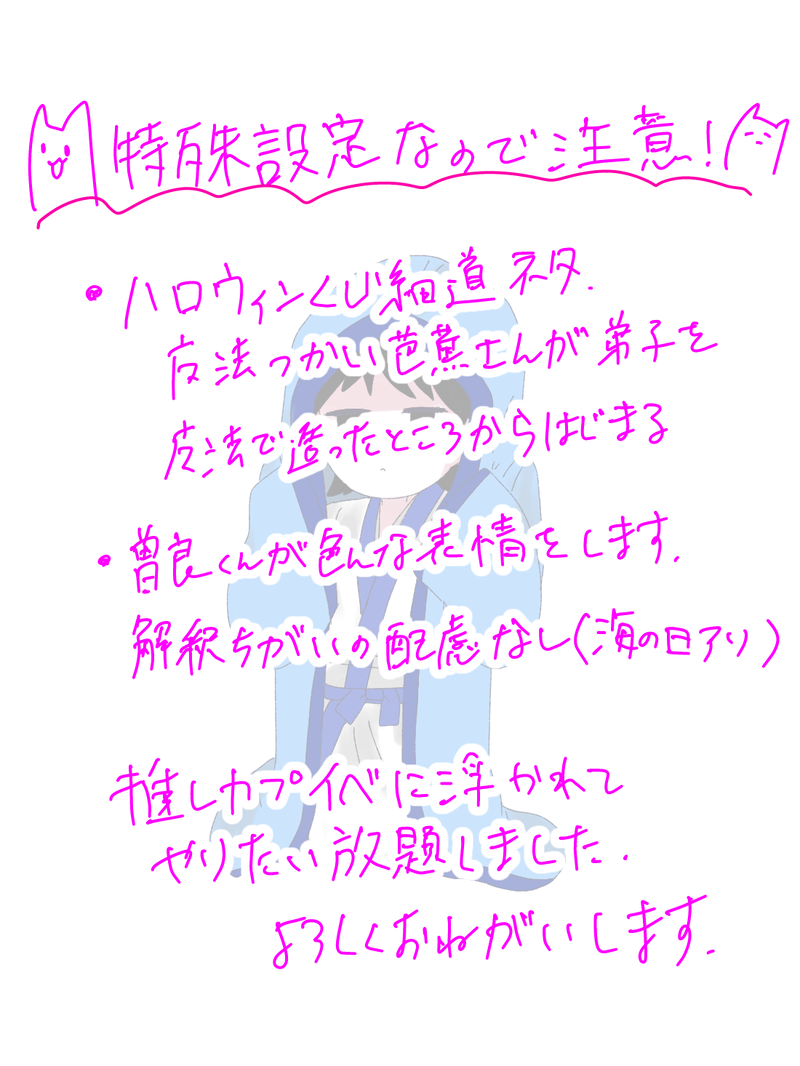 特殊設定なので注意!
・ハロウィンくじ細道ネタ.
魔法つかい芭蕉さんが弟子を
魔法で造ったところからはじまる
・曽良くんが色んな表情をします.
解釈ちがいの配慮なし(海の日アリ)
推しカプイベに浮かれて
やりたい放題しました.
よろしくおねがいします.